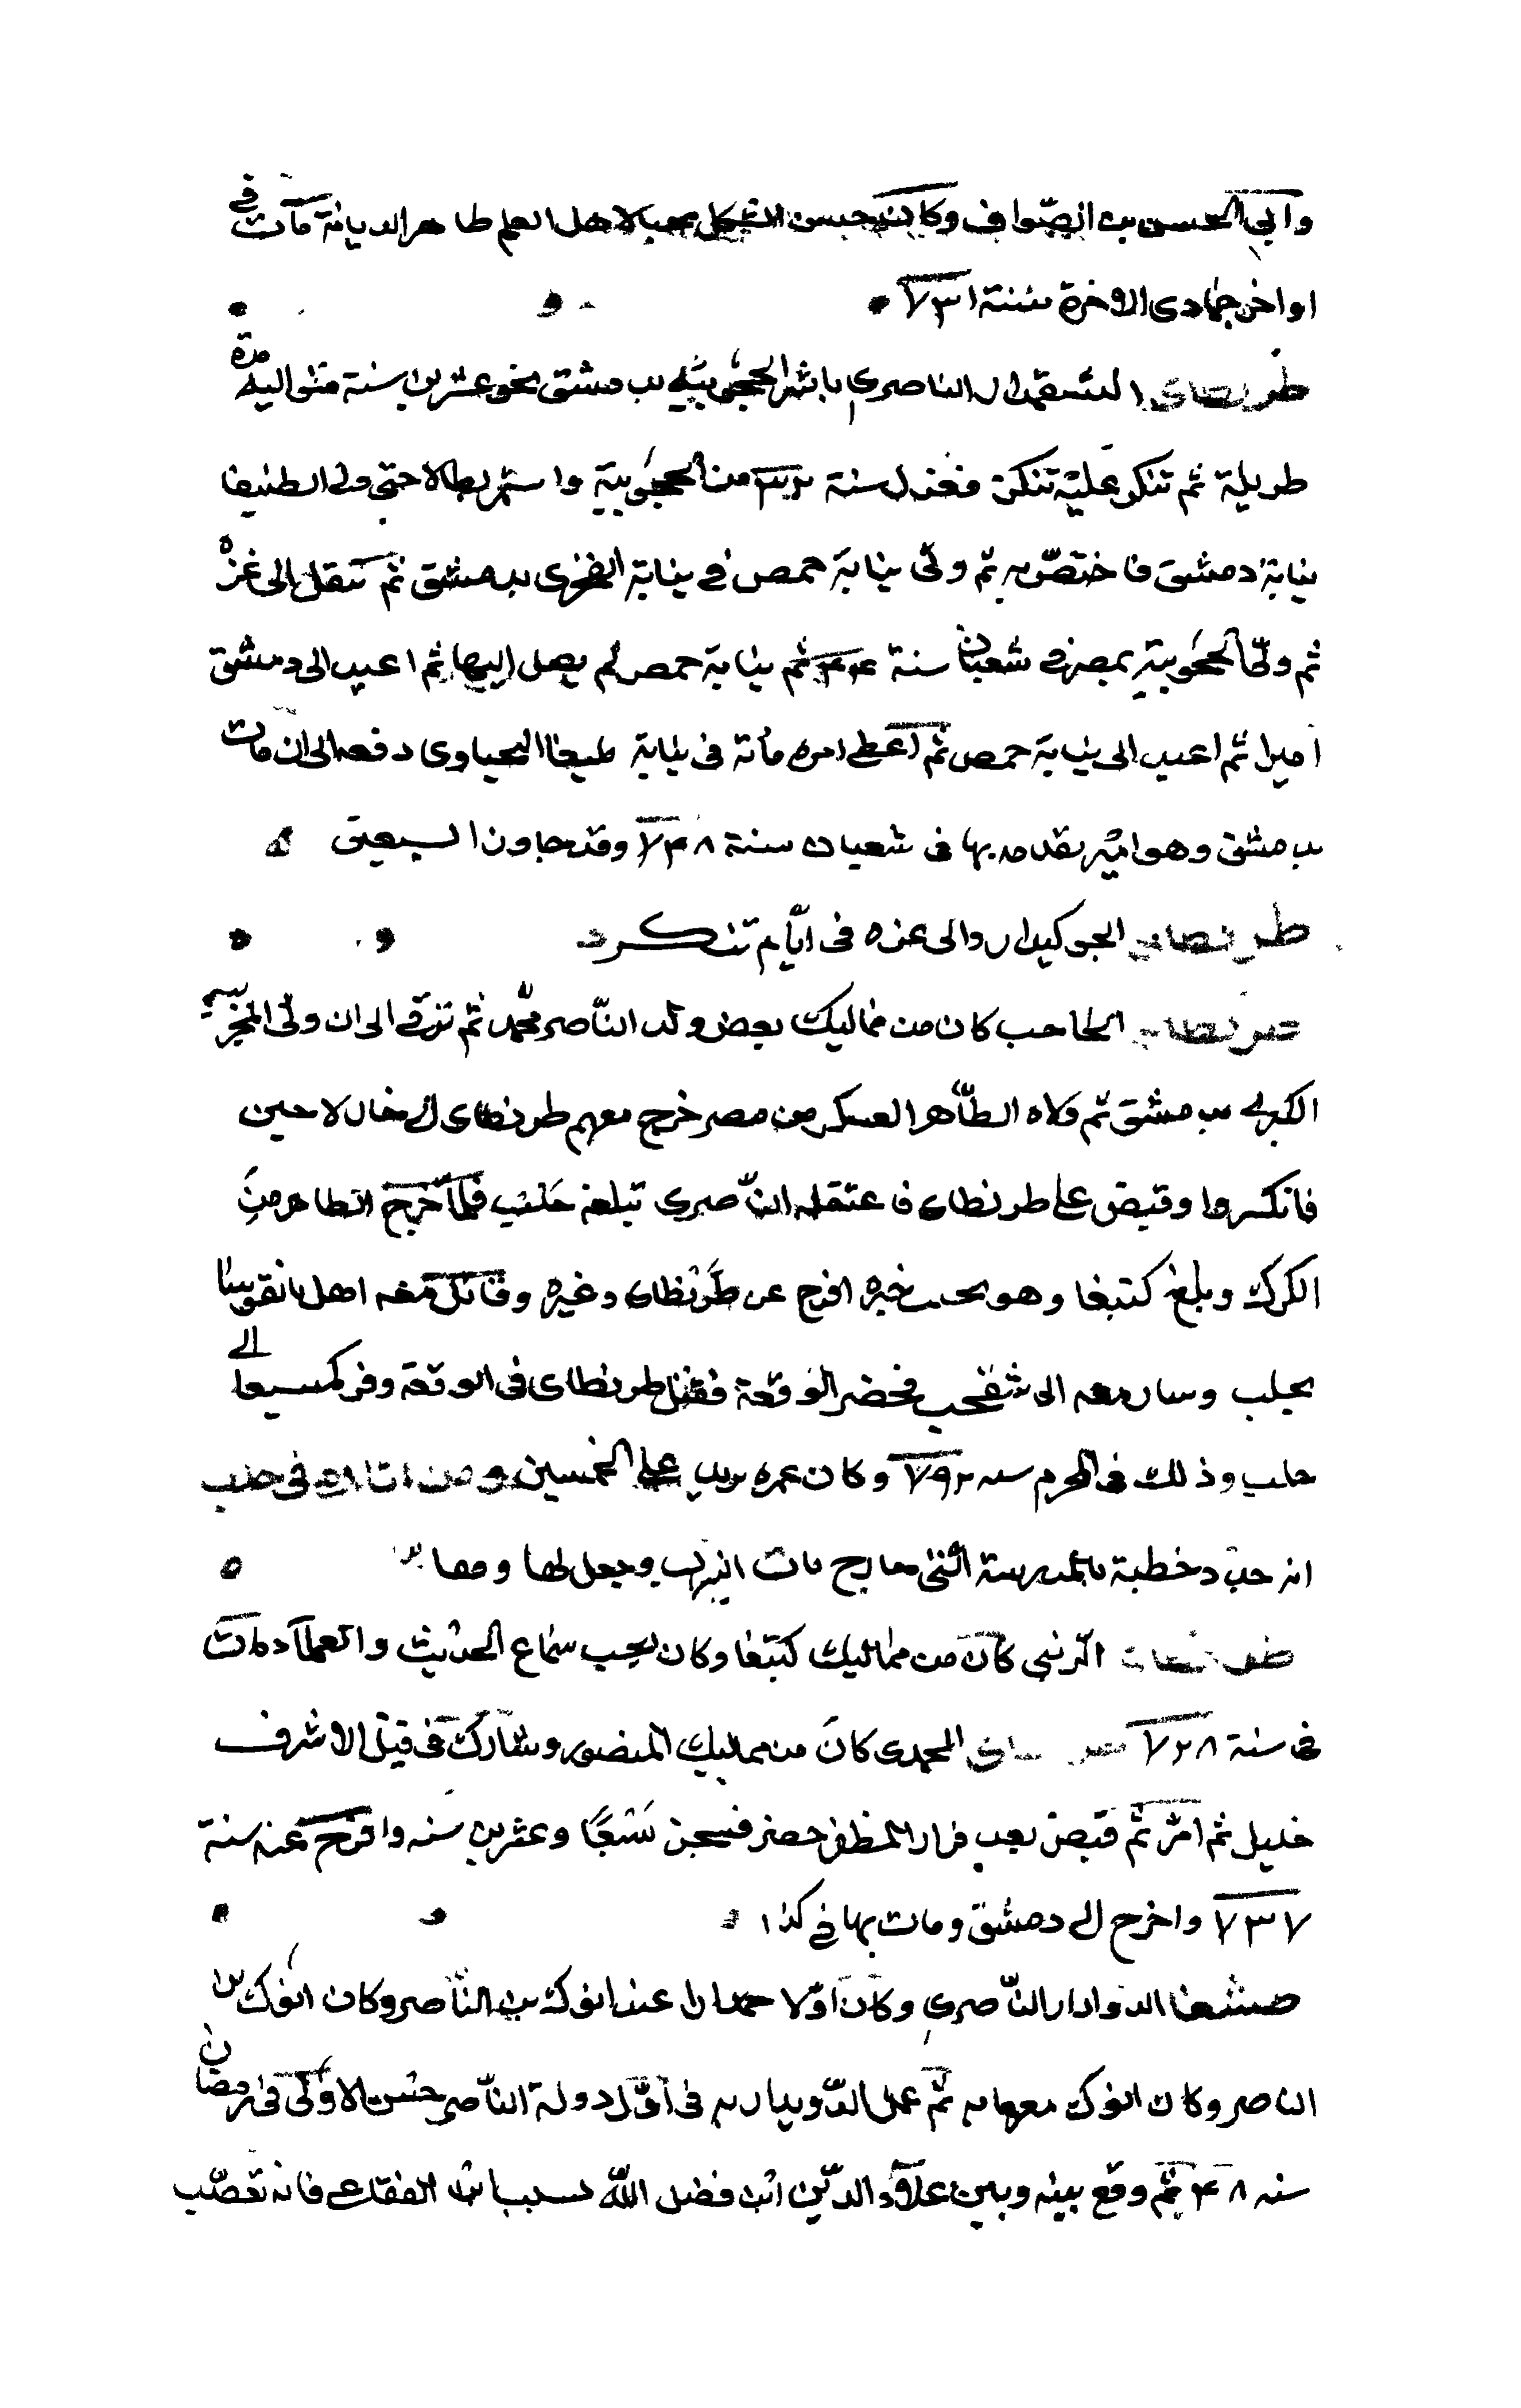 وابي الحسن بن الصواف وكان حسن الشكل محبا لاهل العلم طاهر الديانة مات في
اواخر جمادى الاخرة سنة ٧٣١
طرنطاى البشمقدار الناصرى باشر الحجوبية بدمشق نحو عشرين سنة متواليه مدة
طويلة ثم تنكر عليه تنكز فعزل سنة من الحجوبية واستمر بطالا حتى ولى الطنبغا
نيابة دمشق فاختص به ثم ولى نيابة حمص في نيابة الفخرى بدمشق ثم تنقل الى غزه
ثم ولى الحجوبية بمصر في شعبان سنة ٤٤ ثم نيابة حمص لم يصل اليها ثم اعيد الى دمشق
اميرا ثم اعيد الى نيابة حمص ثم اعطى امره مأته فى نيابة يلبغا اليحياوى دفعه الى ان مات
بدمشق وهو امير تقدمه بها فى شعبان سنة ٧٤٨ وقد جاوز السبعين
طرنطاى الجوكندار والى غزه فى ايام تنكز
طرنطاى الحاجب كان من مماليك بعض ولد الناصر محمد ثم ترقى الى ان ولى الحجوبية
الكبرى بدمشق ثم ولاه الظاهر العسكر من مصر خرج معهم طرنطاى لاحين
فانكسروا وقبض على طرنطاى فاعتقله الناصرى بقلعة حلب فلما خرج الظاهر من
الكرك وبلغ كتبغا وهو بحلب خبره افرج عن طرنطاى وغيره وقاتل معه اهل بانقوسا
بحلب وسار معه الى شقحب فحضر الوقعة فقتل طرنطاى فى الوقعة وفر كمسبغا الى
حلب وذلك فى المحرم سنه ٧٩٢ وكان عمره يزيد على الخمسين ومن اثاره فى حلب
انه جدد خطبة بالمدرسة التى خارج باب النيرب وجعل لها
طرنطاى الزينى كان من مماليك كتبغا وكان يحب سماع الحديث والعلما ومات
فى سنة ٧٢٨ طرنطاى المحمدى كان من مماليك المنصور وشارك فى قتل الاشرف
خليل ثم امر ثم قبض بعد فرار المظفر فسجن سبعا وعشرين سنه وافرج عنه سنة
٧٣٧ واخرج الى دمشق ومات بها فى كذا
طشبغا الدوادار الناصرى وكان اولا جمدارا عند انوك بن الناصر وكان انوك بن
الناصر وكان انوك ثم عمل الدويداريه فى اول دولة الناصر حسن الاولى فى رمضان
سنه ٤٨ ثم وقع بينه وبين علاء الدين ابن فضل الله بسبب فانه تعصب